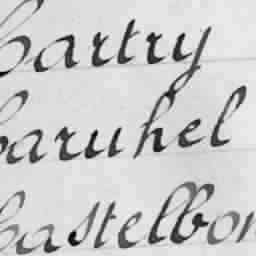 Cartry
Caruhel
Castelbon